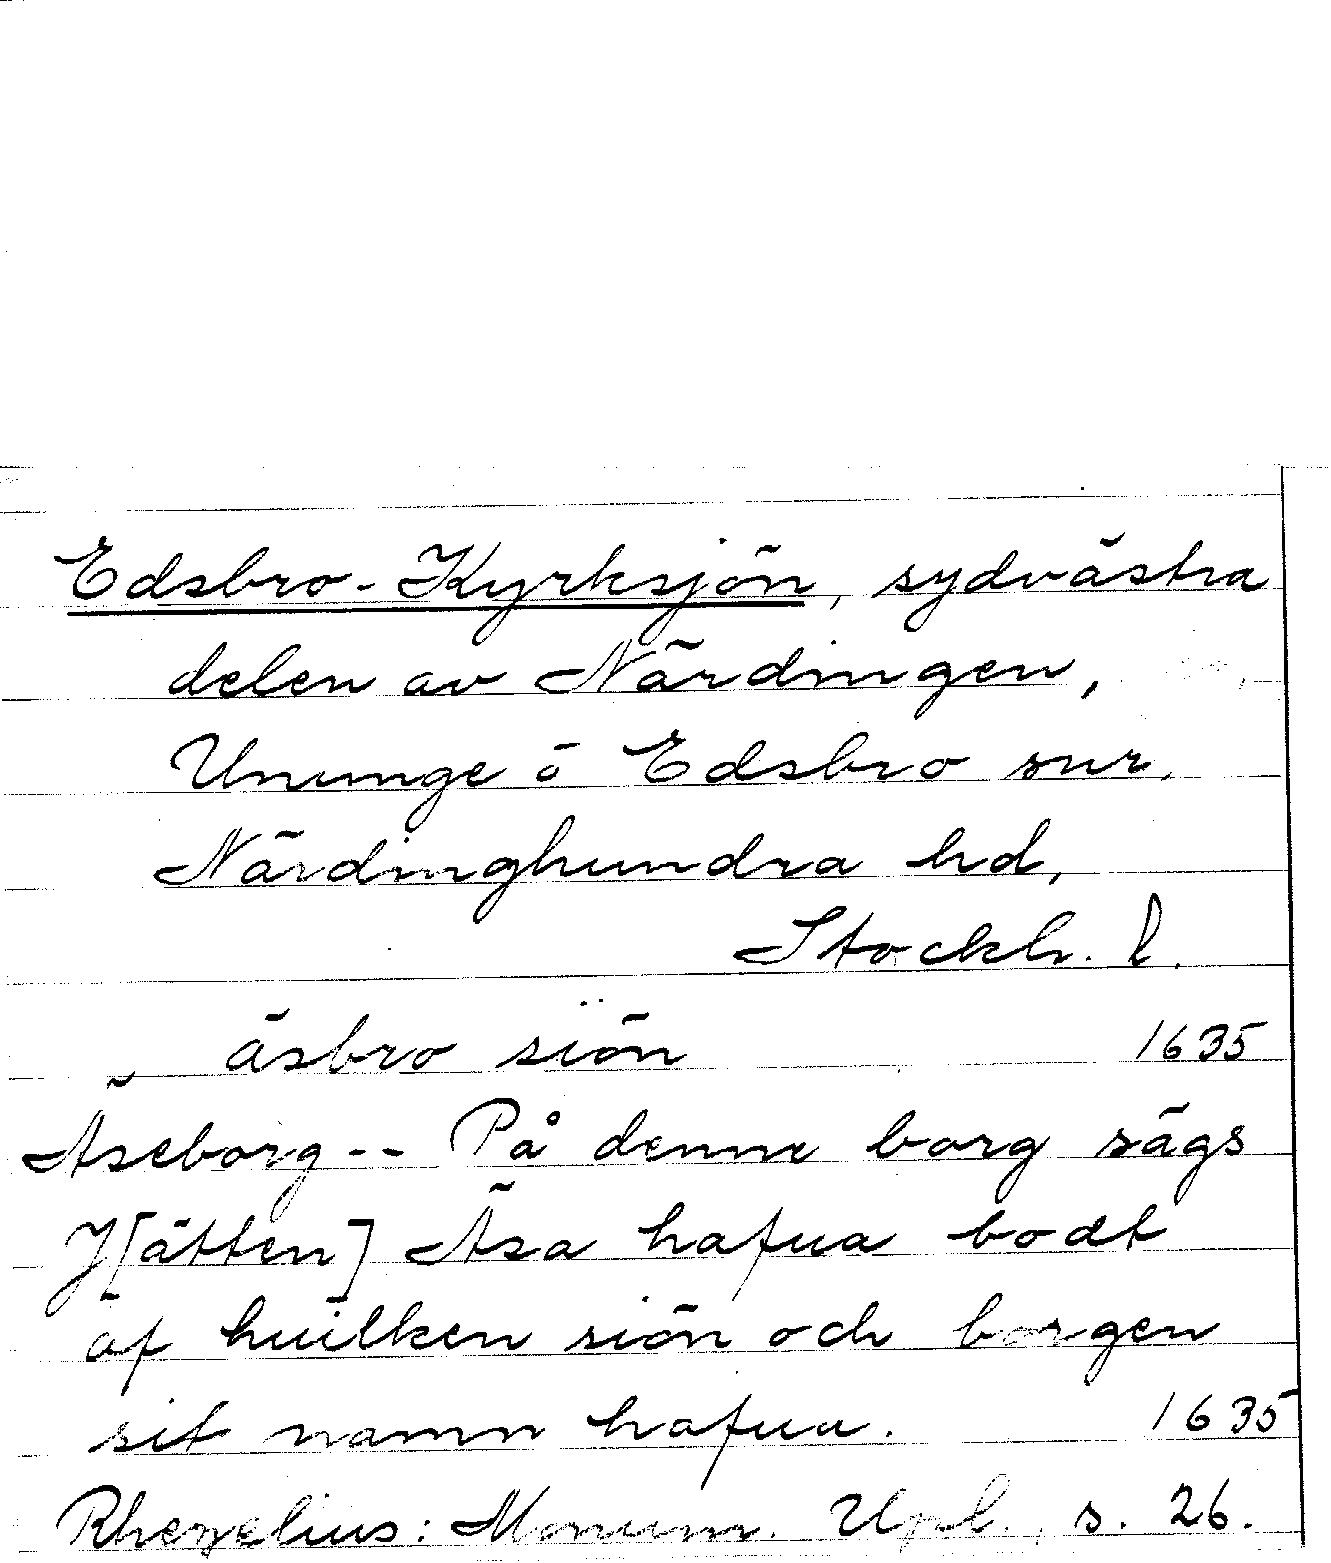 Edsbro-Kyrksjön, sydvästra
delen av Närdingen,
Ununge o Edsbro snr,
Närdinghundra hd,
Stockh. l.
äsbro siön 1635
Äseborg-- På denne borg sägs
J[ätten] Äsa hafua bodt
äf huilken siön och borgen
sit namn hafua. 1635
Rhezelius: Monum. Upl., s. 26.